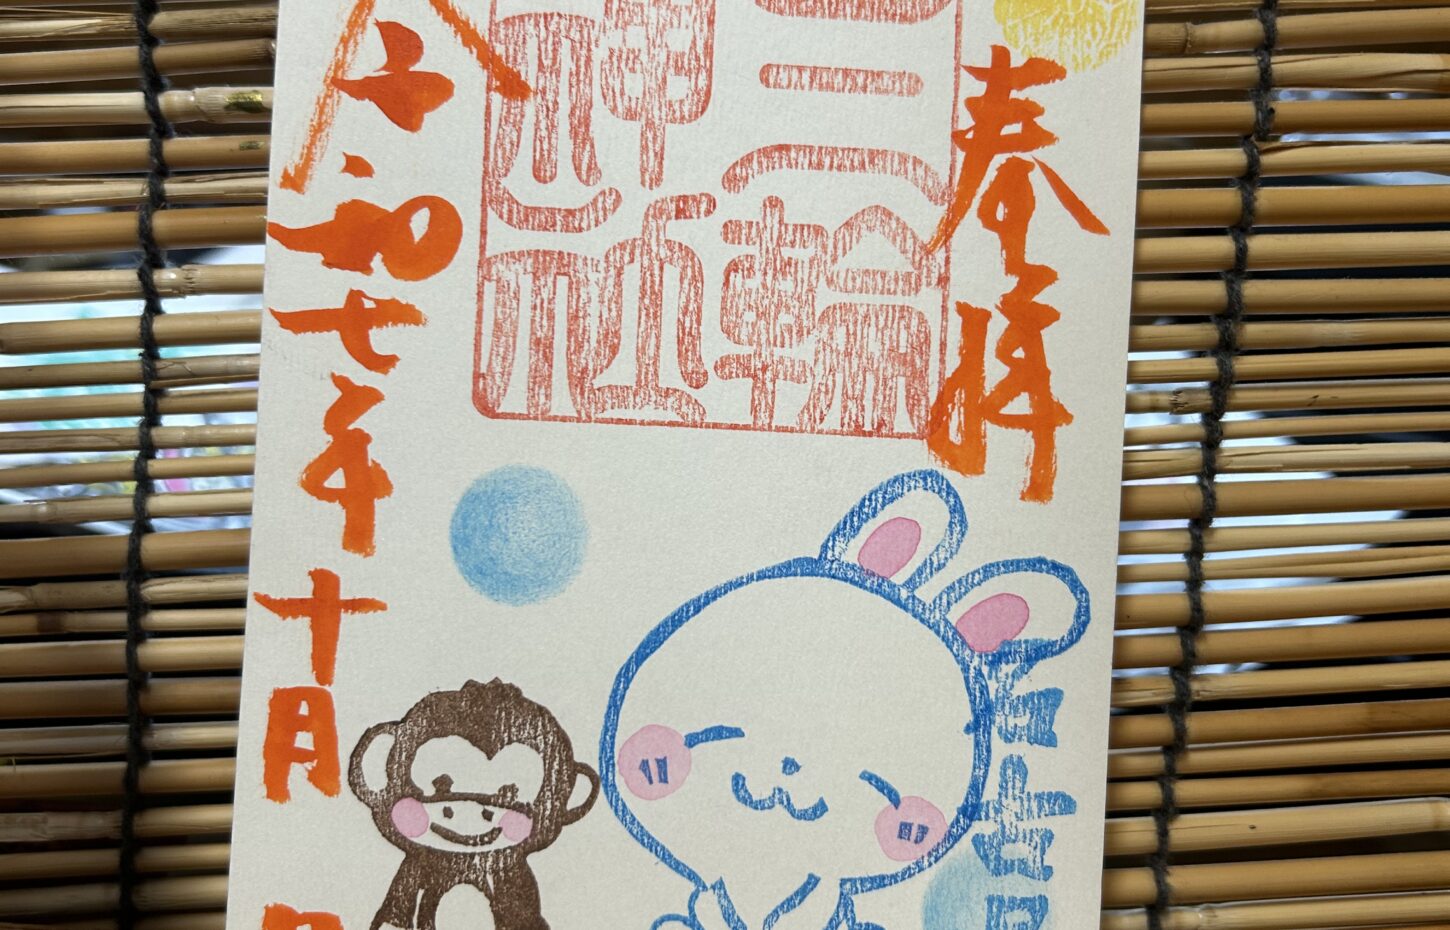 奉拝
三輪
神社
令和七年十月